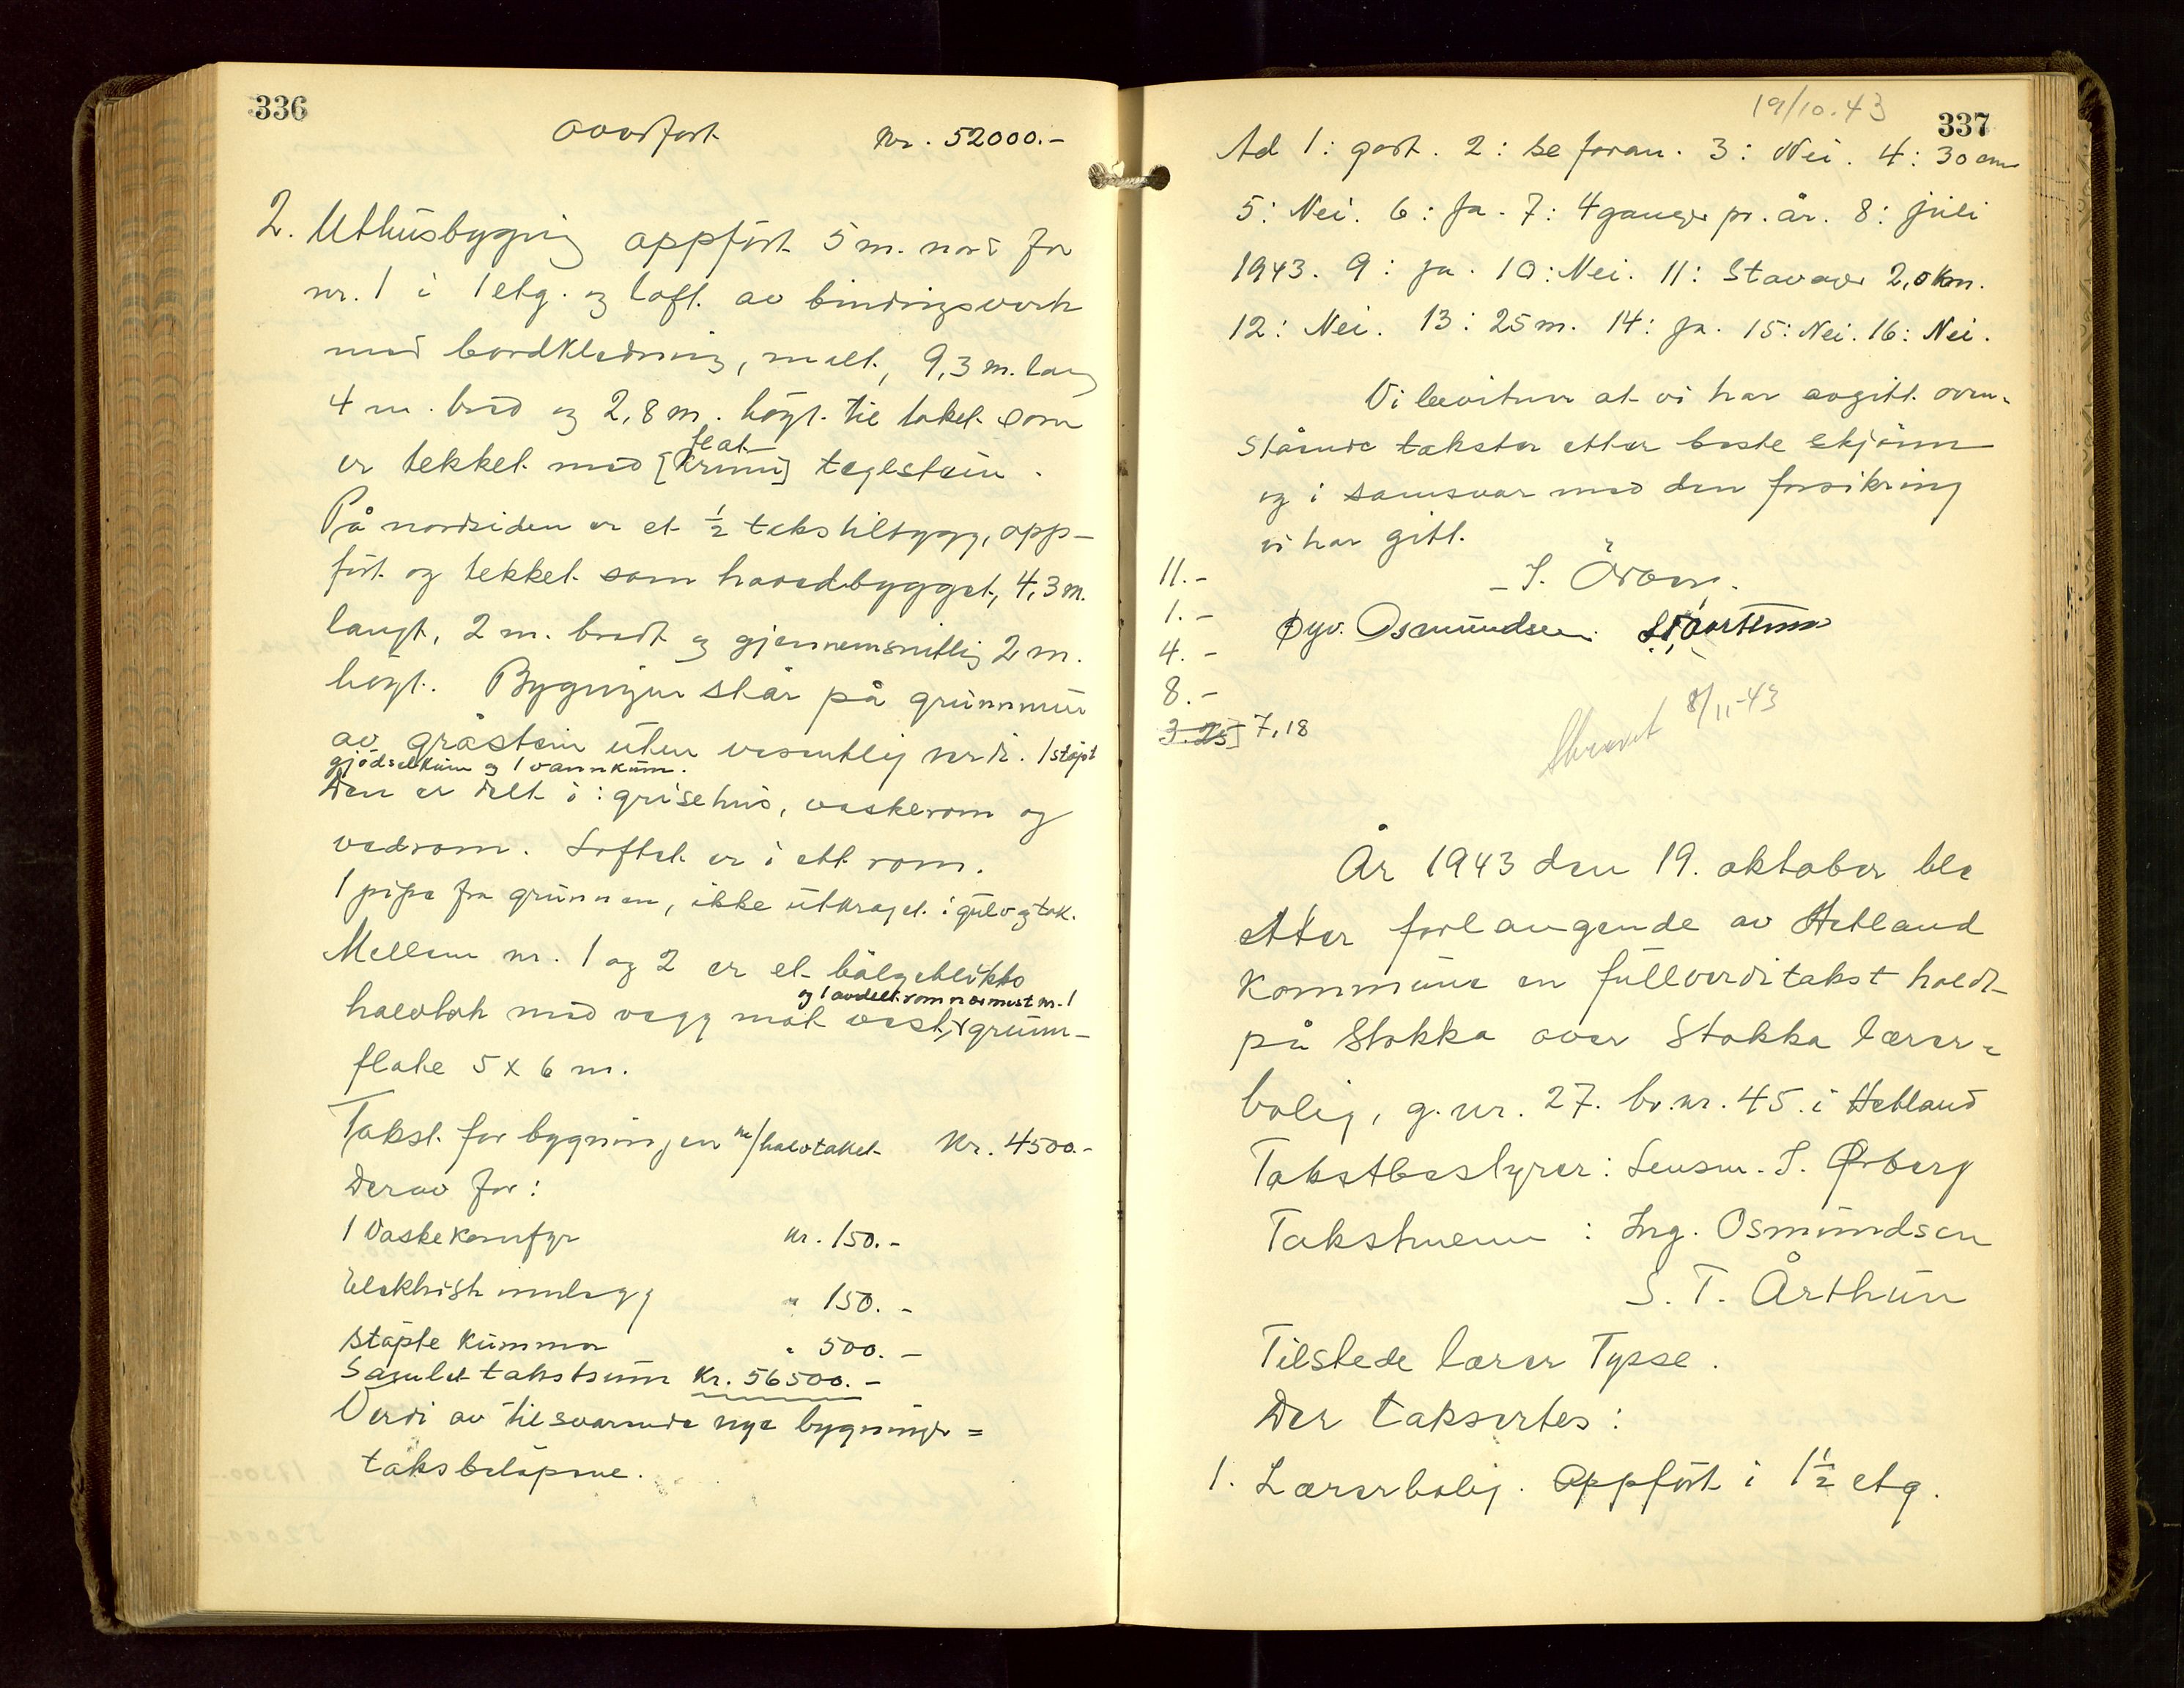 336
overført Kr. 52000.-
2. Uthusbygning oppført 5 m. nord for
nr. 1 i 1 etg. og loft av bindingsverk
med bordkledning, malt, 9,3 m. lang
4 m. bred og 2,8 m. høgt til taket som
flat
er tekket med [krum] teglstein.
På nordsiden er et ½ takstilbygg, opp-
ført og tekket som hovedbygget, 4,3 m.
langt, 2 m. bredt og gjennemsnitlig 2 m.
høgt. Bygningen står på grunnmur
av gråstein uten vesentlig verdi. 1 støpt
gjødselkum og 1 vannkum.
Den er delt i: grisehus, vaskerom og
vedrom. Loftet er i ett rom.
1 pipe fra grunnen, ikke utkraget i gulv og tak.
Mellem nr. 1 og 2 er et bølgeblikks
og 1 avdelt rom nærmest nr. 1
halvtak med vegg mot vest, grunn-
flate 5 x 6 m.
Takst for bygningen m/halvtaket Kr. 4500.-
Derav for:
1 Vaskekomfyr kr. 150.-
Elektrisk innlegg " 150.-
støpte kummer " 500.-
Samlet takstsum Kr. 56500.-
Verdi av tilsvarende nye bygninger =
taksbeløpene.
19/10.43
337
Ad 1: godt. 2: se foran. 3: Nei. 4: 30 cm
5: Nei. 6: Ja. 7: 4 ganger pr. år. 8: juli
1943. 9: ja. 10: Nei. 11: Stavanger 2,0 km.
12: Nei. 13: 25 m. 14: Ja. 15: Nei. 16: Nei.
Vi bevitner at vi har avgitt oven-
stående takster etter beste skjønn
og i samsvar med den forsikring
vi har gitt.
11.-
1.-
4.-
8.-
3.25] 7,18
Øyv. Osmundsen. S T Årthun
Skrevet 8/11-43
År 1943 den 19. oktober ble
etter forlangende av Hetland
kommune en fullverditakst holdt
på Stokka over Stokka lærer=
bolig, g.nr. 27. br.nr. 45. i Hetland
Takstbestyrer: Lensm. S. Ørberg
Takstmenn: Ing. Osmundsen
S. T. Årthun
Tilstede lærer Tysse.
Der taksertes:
1. Lærerbolig. Oppført i 1½ etg.